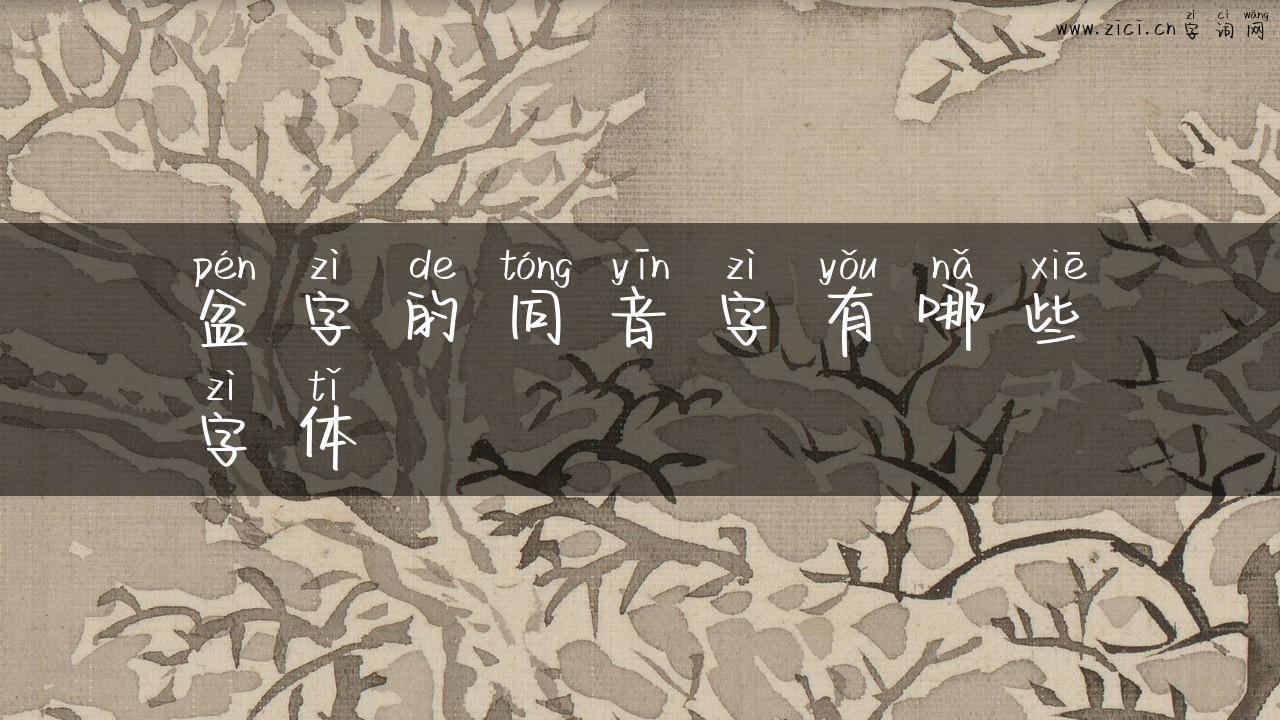 zì cí wǎng
www.zici.cn字词网
pén zì de tóng yīn zì yǒu nǎ xiē
盆字的同音字有哪些
zì tǐ
字体